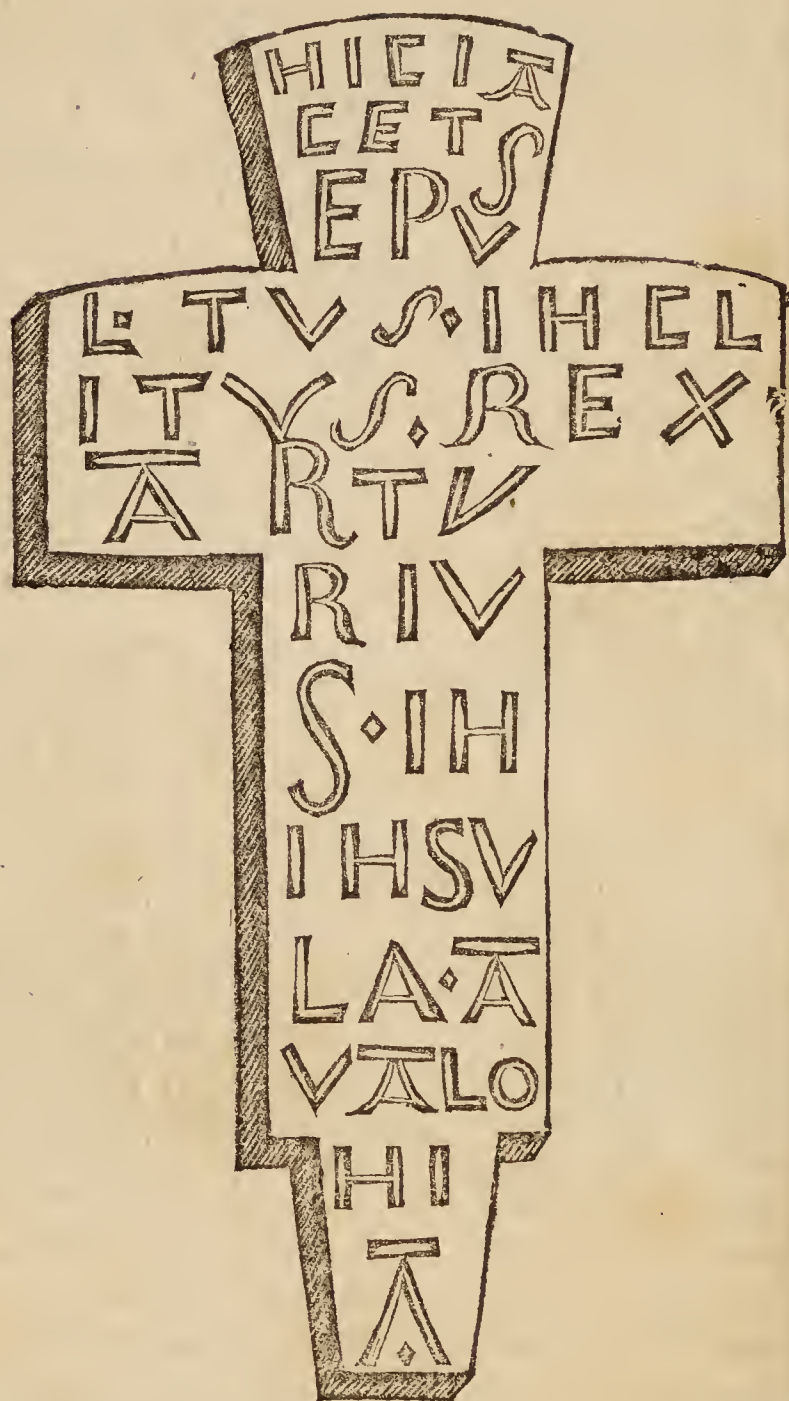 HICIA
CETS
EPV
L·TVS·IHCL
ITVS·REX
ARTV
RIV
S·IH
IHSV
LA·A
VALO
HI
A